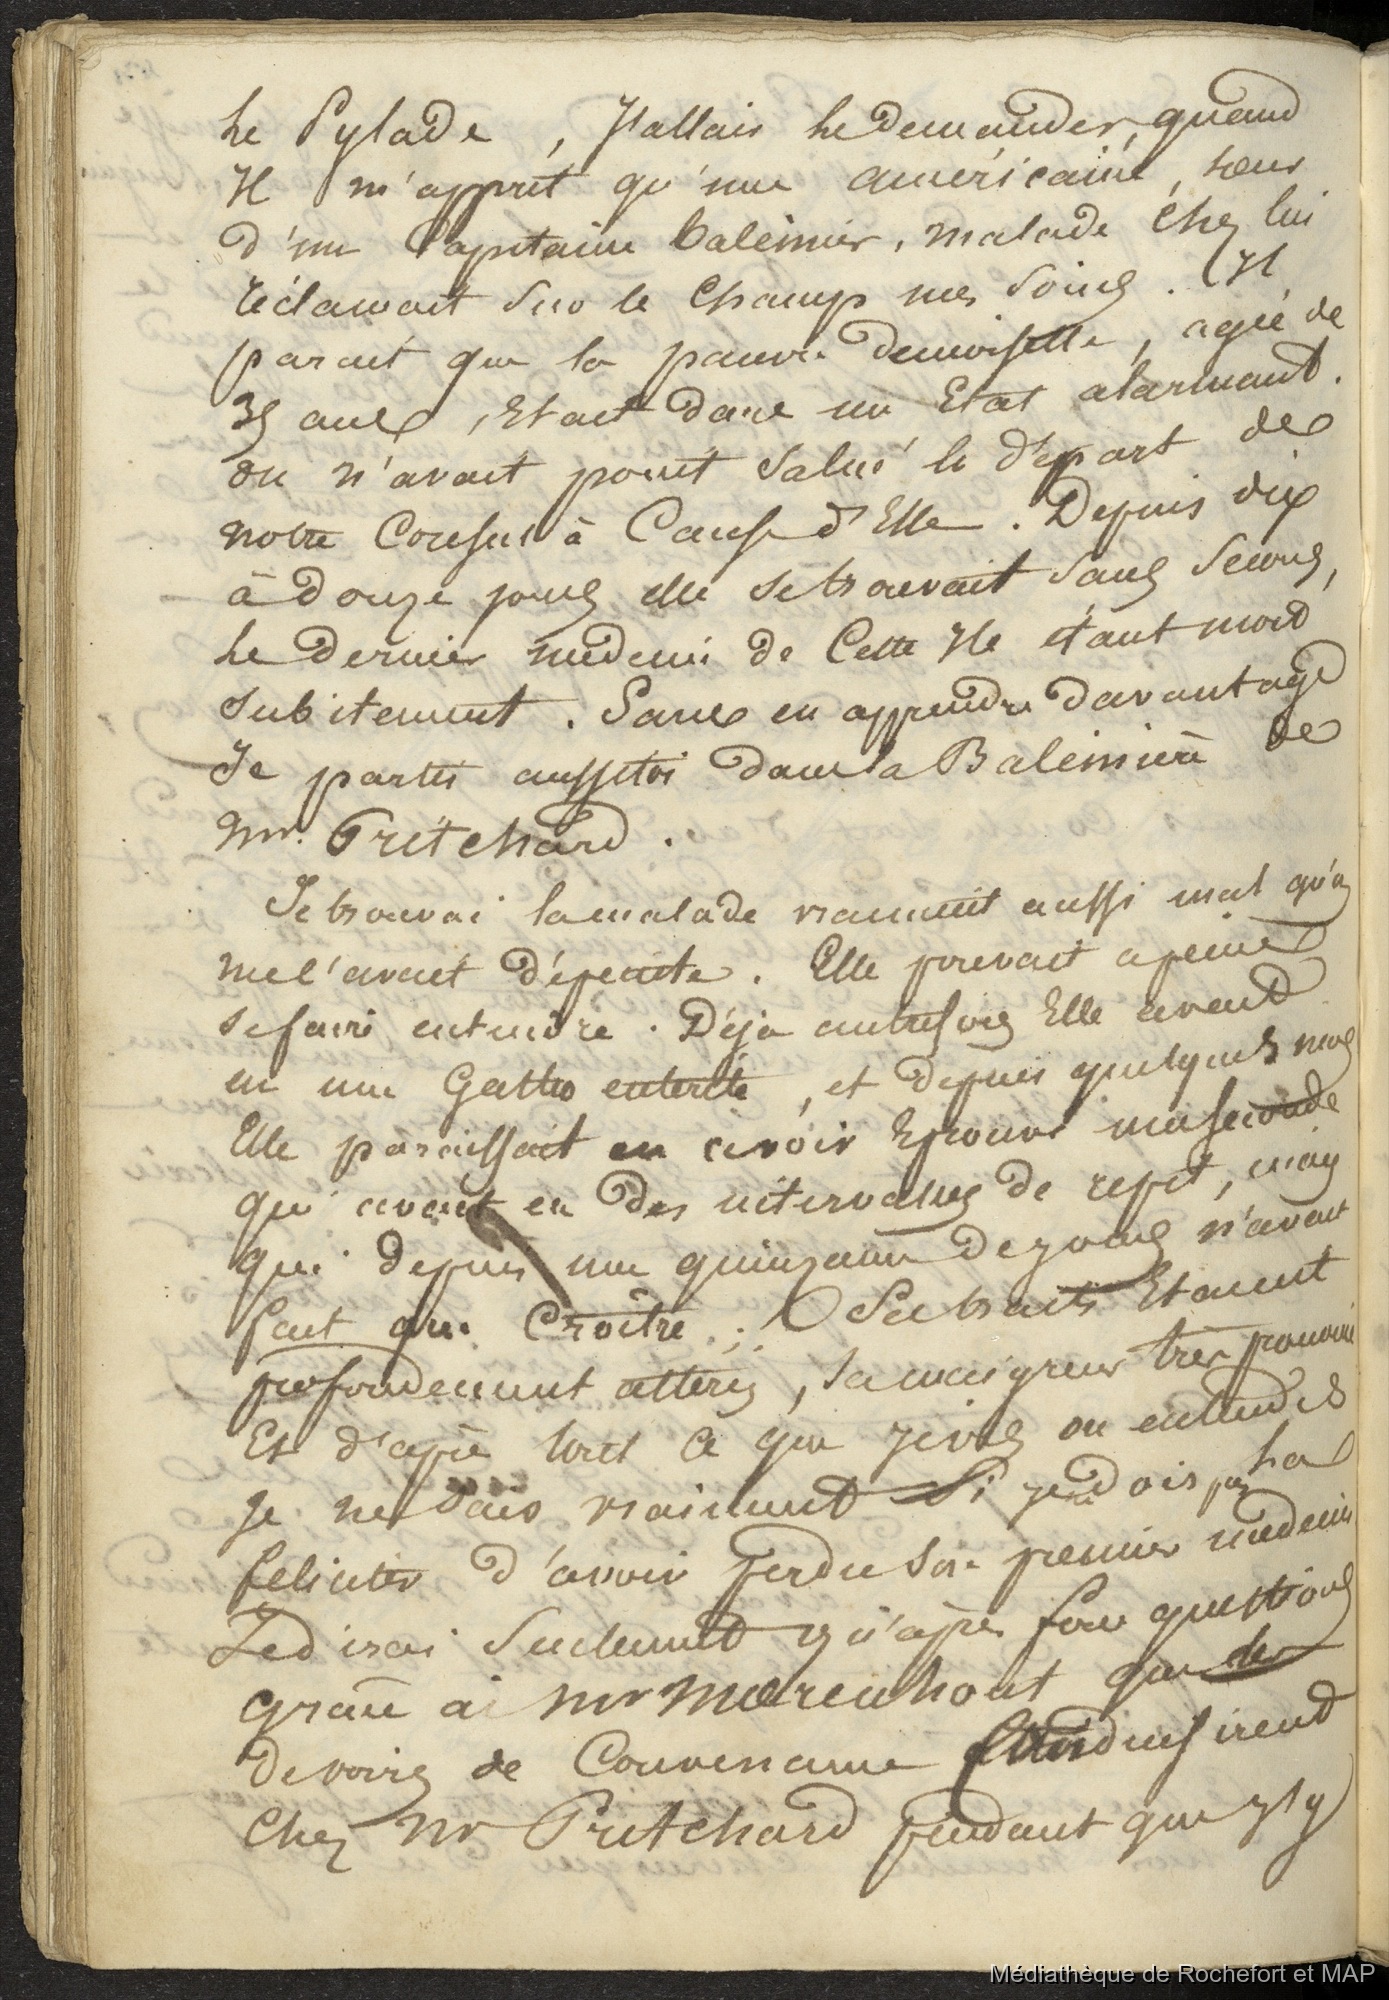 Le Pylade, J'allais le demander, quand
Il m'apprit qu'une américaine, soeur
d'un Capitaine baleinier, malade chez lui
réclamait sur le champ mes soins. Il
parait que la pauvre demoiselle, agée de
35 ans, Etait dans un Etat alarmant.
on n'avait point salué le départ de
notre Consul à Cause d'Elle. Depuis dix
à douze jours elle se trouvait sans secours,
le dernier médecin de Cette Ile étant mort
subitement. Sans en apprendre davantage
Je partis aussitôt dans la Baleinière de
Mr. Pritchard.
Je trouvai la malade vraiment aussi mal qu'on
me l'avait dépeinte. Elle pouvait a peine
se faire entendre. Déja autrefois Elle avait
eu une Gastro entérite, et depuis quelques mois
Elle paraissait en avoir Eprouvé une seconde
qui avait eu des intervalles de répit, mais
qui depuis une quinzaine de jours n'avait
fait que Croître; Ses traits Etaient
profondement altérés, sa maigreur très
Et d'après tout ce que je vis ou entendis
Je ne sais vraiment Si je dois pas la
féliciter d'avoir perdu son premier médecin
Je dirai seulement qu'après  questions
grâce à Mr Moerenhout que des
devoirs de Convenance Conduisirent
Chez Mr Pritchard pendant que j'y
Médiathèque de Rochefort et MAP